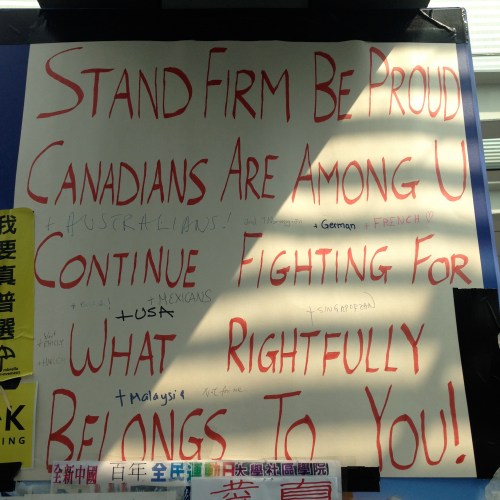 STAND FIRM BE PROUD
CANADIANS ARE AMONG U
+ AUSTRALIANS! + German + FRENCH
CONTINUE FIGHTING FOR
+ MEXICANS + SINGAPOREAN
+ USA
WHAT RIGHTFULLY
+ Malaysia
BELONGS TO YOU!
我要真普選
K
ING
全新中國 百年 全民運動